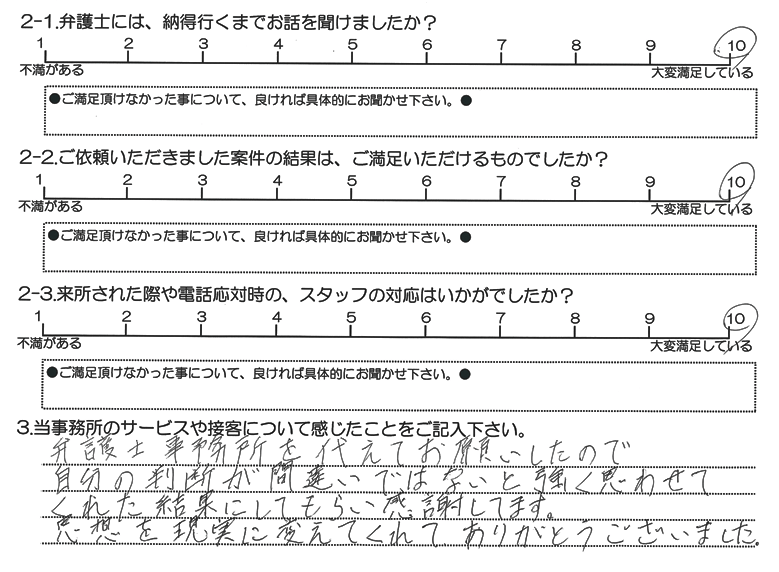 2-1.弁護士には、納得行くまでお話を聞けましたか？
1 2 3 4 5 6 7 8 9 10
不満がある 大変満足している
●ご満足頂けなかった事について、良ければ具体的にお聞かせ下さい。●
2-2.ご依頼いただきました案件の結果は、ご満足いただけるものでしたか？
1 2 3 4 5 6 7 8 9 10
不満がある 大変満足している
●ご満足頂けなかった事について、良ければ具体的にお聞かせ下さい。●
2-3.来所された際や電話応対時の、スタッフの対応はいかがでしたか？
1 2 3 4 5 6 7 8 9 10
不満がある 大変満足している
●ご満足頂けなかった事について、良ければ具体的にお聞かせ下さい。●
3.当事務所のサービスや接客について感じたことをご記入下さい。
弁護士事務所を代えてお願いしたので
自分の判断が間違いではないと強く思わせて
くれた結果にしてもらい感謝してます。
思想を現実に変えてくれてありがとうございました。